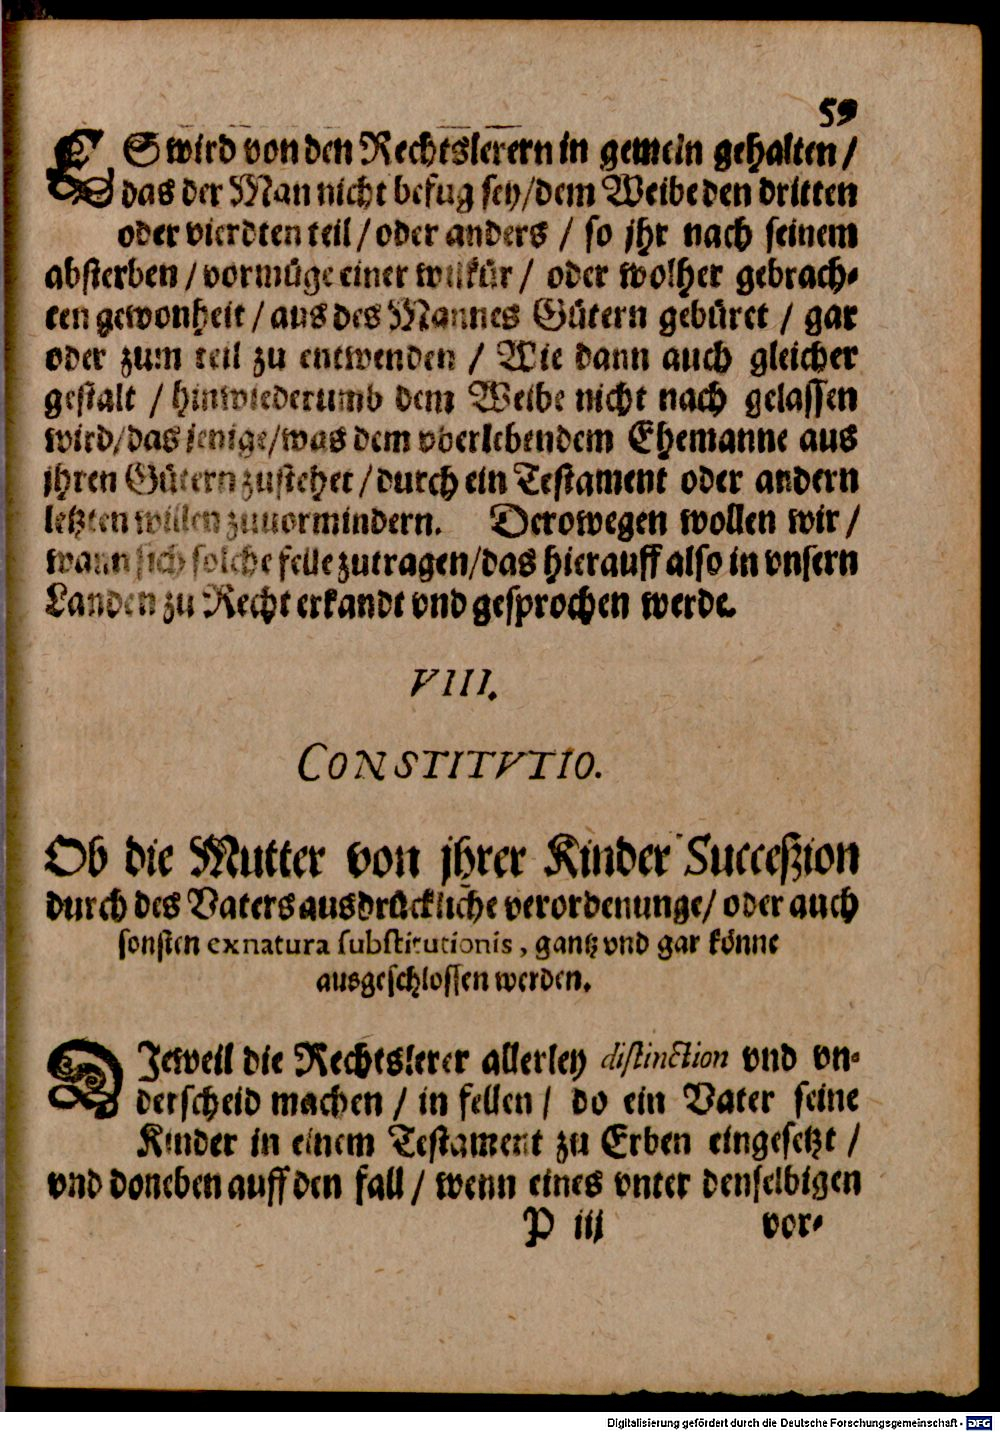 59
ES wird von den Rechtslerern in gemein gehalten /
das der Man nicht befug sey/dem Weibe den dritten
oder vierdten teil / oder anders / so jhr nach seinem
absterben / vormüge einer wilkür / oder wolher gebrach-
ten gewonheit / aus des Mannes Gütern gebüret / gar
oder zum teil zu entwenden / Wie dann auch gleicher
gestalt / hinwiederumb dem Weibe nicht nach gelassen
wird/das jenige/was dem vberlebendem Ehemanne aus
jhren Gütern zustehet / durch ein Testament oder andern
letzten willen zuuormindern. Derowegen wollen wir /
wann sich solche felle zutragen/das hierauff also in vnsern
Landen zu Recht erkandt vnd gesprochen werde.
VIII.
CONSTITVTIO.
Ob die Mutter von jhrer Kinder Succeßion
durch des Vaters ausdrückliche verordenunge/ oder auch
sonsten ex natura substitutionis, gantz vnd gar könne
ausgeschlossen werden.
DJeweil die Rechtslerer allerley distinction vnd vn-
derscheid machen / in fellen / do ein Vater seine
Kinder in einem Testament zu Erben eingesetzt /
vnd doneben auff den fall / wenn eines vnter denselbigen
P iij vor-
Digitalisierung gefördert durch die Deutsche Forschungsgemeinschaft - DFG